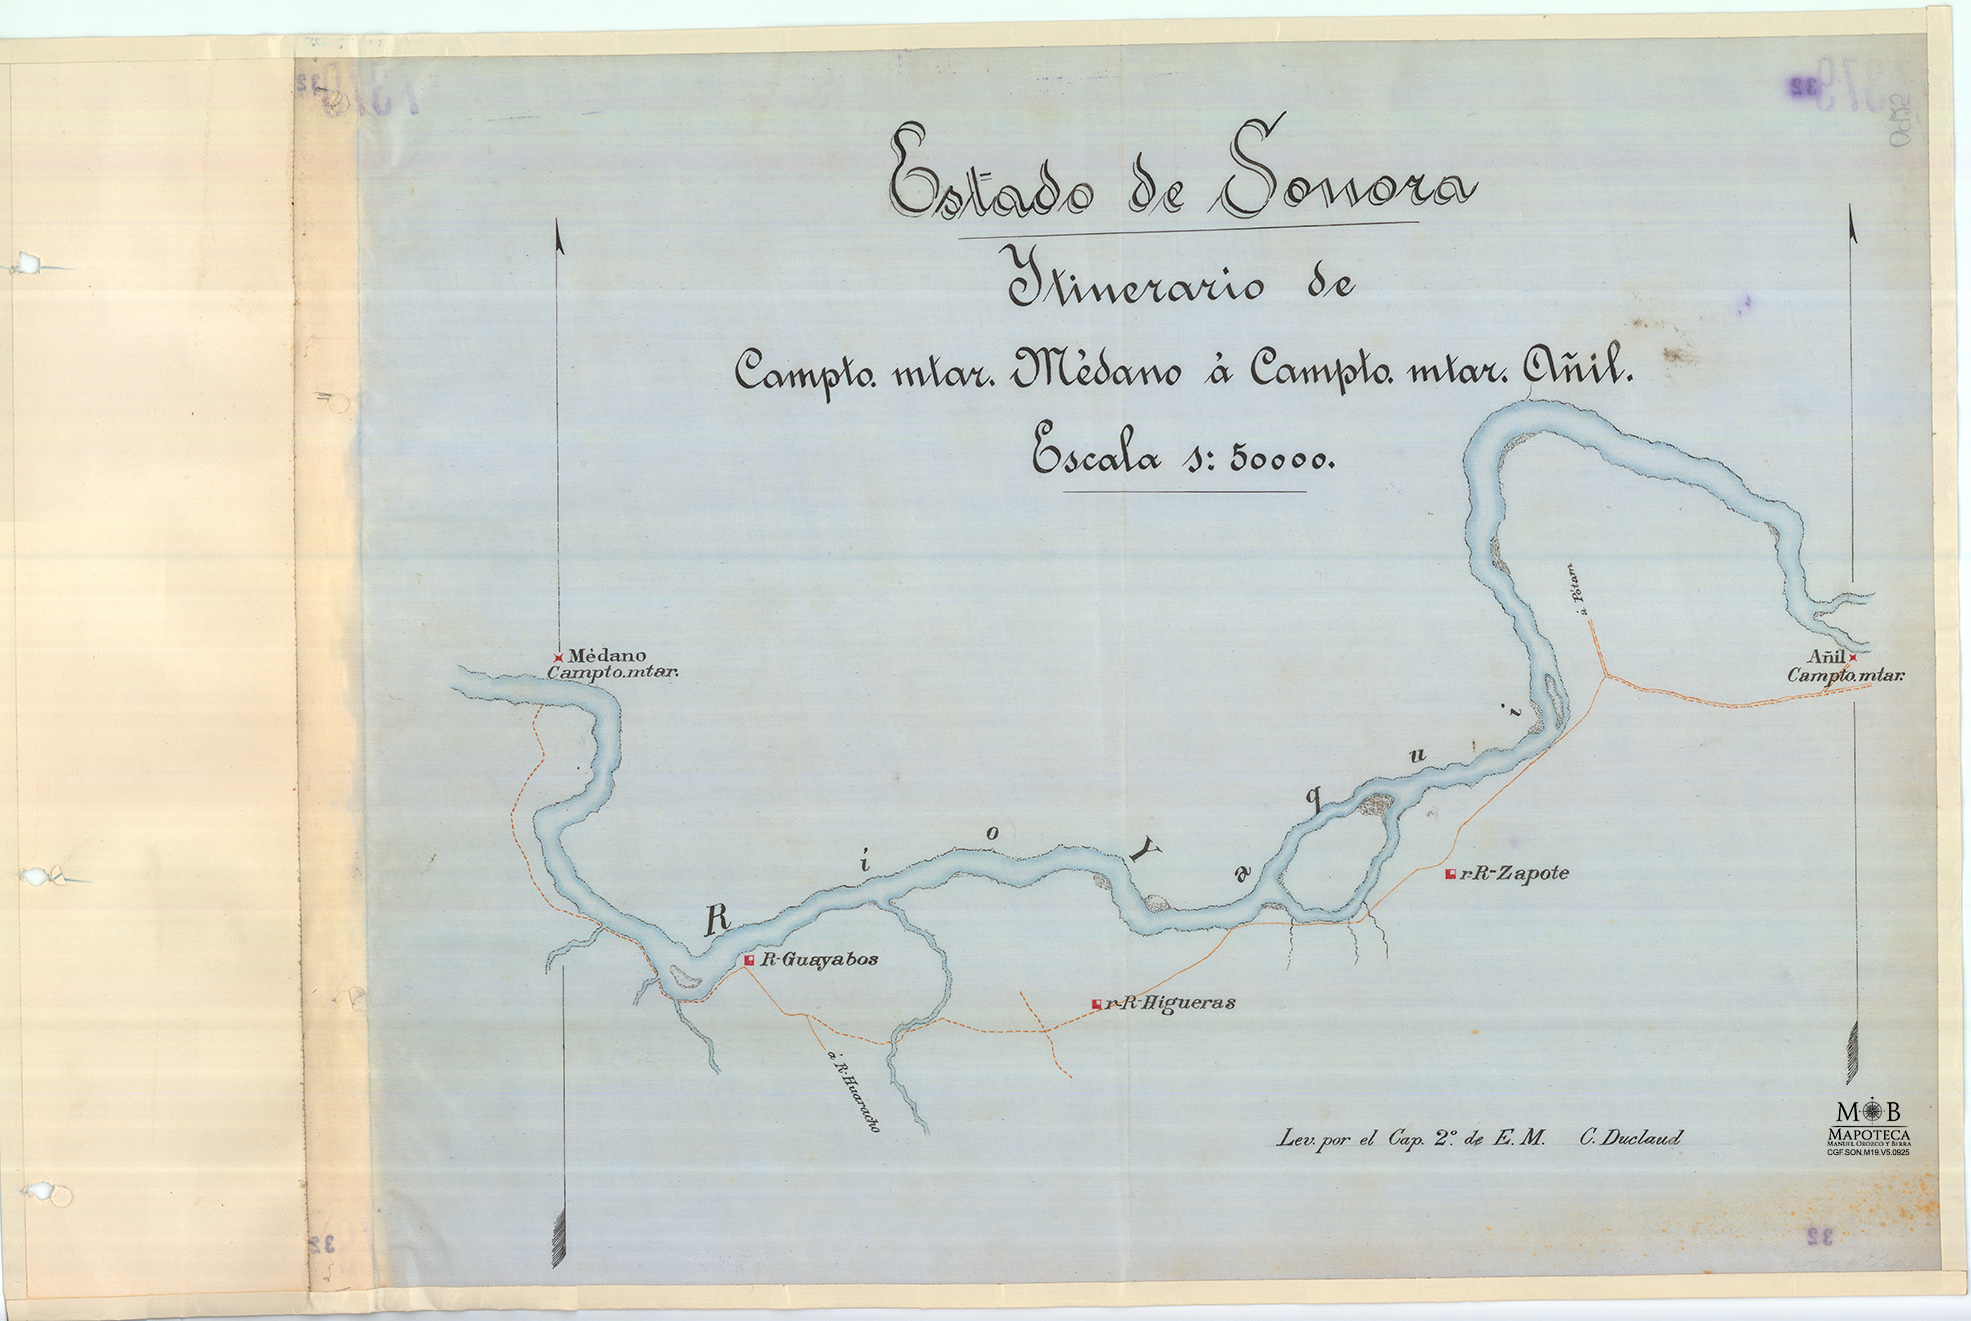 Estado de Sonora
Itinerario de
Campto. mtar. Mèdano à Campto. mtar. Añil.
Escala 1: 50000.
à Pótam
Mèdano
Campto. mtar.
Añil
Campto. mtar.
Rio Yaqui
rR-Zapote
R-Guayabos
r-R-Higueras
à R-Huaracho
Lev. por el Cap. 2º. de E. M. C. Duclaud
M B
MAPOTECA
MANUEL OROZCO Y BERRA
CGF.SON.M19.V5.0925
32
32
32
32